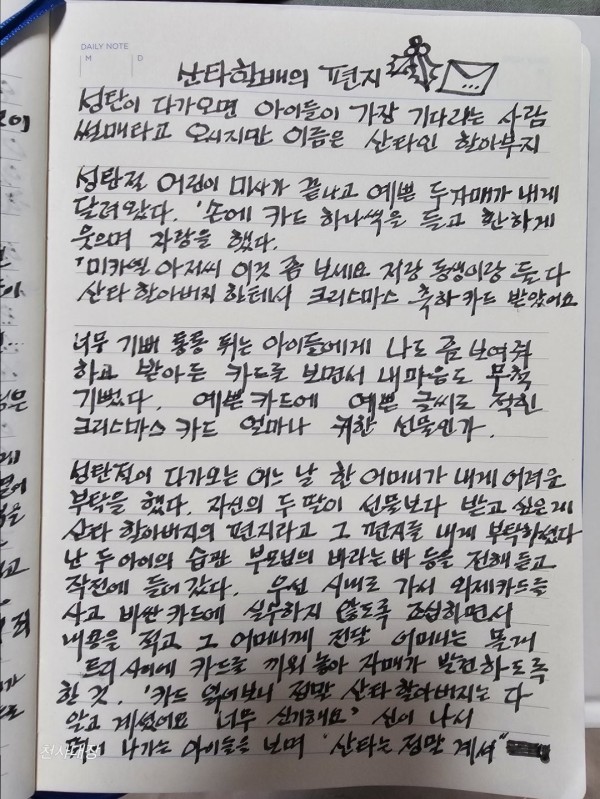 DAILY NOTE
M D
산타할배의 편지
성탄이 다가오면 아이들이 가장 기다리는 사람
썰매타고 오시지만 이름은 산타인 할아부지
성탄절 어린이 미사가 끝나고 예쁜 두자매가 내게
달려왔다. '손에 카드 하나씩을 들고 환하게
웃으며 자랑을 했다.
'미카엘 아저씨 이것 좀 보세요 저랑 동생이랑 둘 다
산타 할아버지 한테서 크리스마스 축하 카드 받았어요
너무 기뻐 통통 뛰는 아이들에게 나도 좀 보여줘
하고 받아든 카드를 보면서 내마음도 무척
기뻤다. 예쁜 카드에 예쁜 글씨로 적힌
크리스마스 카드 얼마나 귀한 선물인가.
성탄절이 다가오는 어느 날 한 어머니가 내게 어려운
부탁을 했다. 자신의 두 딸이 선물보다 받고 싶은게
산타 할아버지의 편지라고 그 편지를 내게 부탁하셨다
난 두 아이의 습관 부모님의 바라는 바 등을 전해 듣고
작전에 들어 갔다. 우선 시내로 가서 외제카드를
사고 비싼 카드에 실수하지 않도록 조심하면서
내용을 적고 그 어머니께 전달 어머니는 몰래
트리 사이에 카드를 끼워 놓아 자매가 발견 하도록
한 것. '카드 열어보니 정말 산타 할아버지는 다
알고 계셨어요 너무 신기해요' 신이 나서
나가는 아이들을 보며 "산타는 정말 계셔"
천사대장